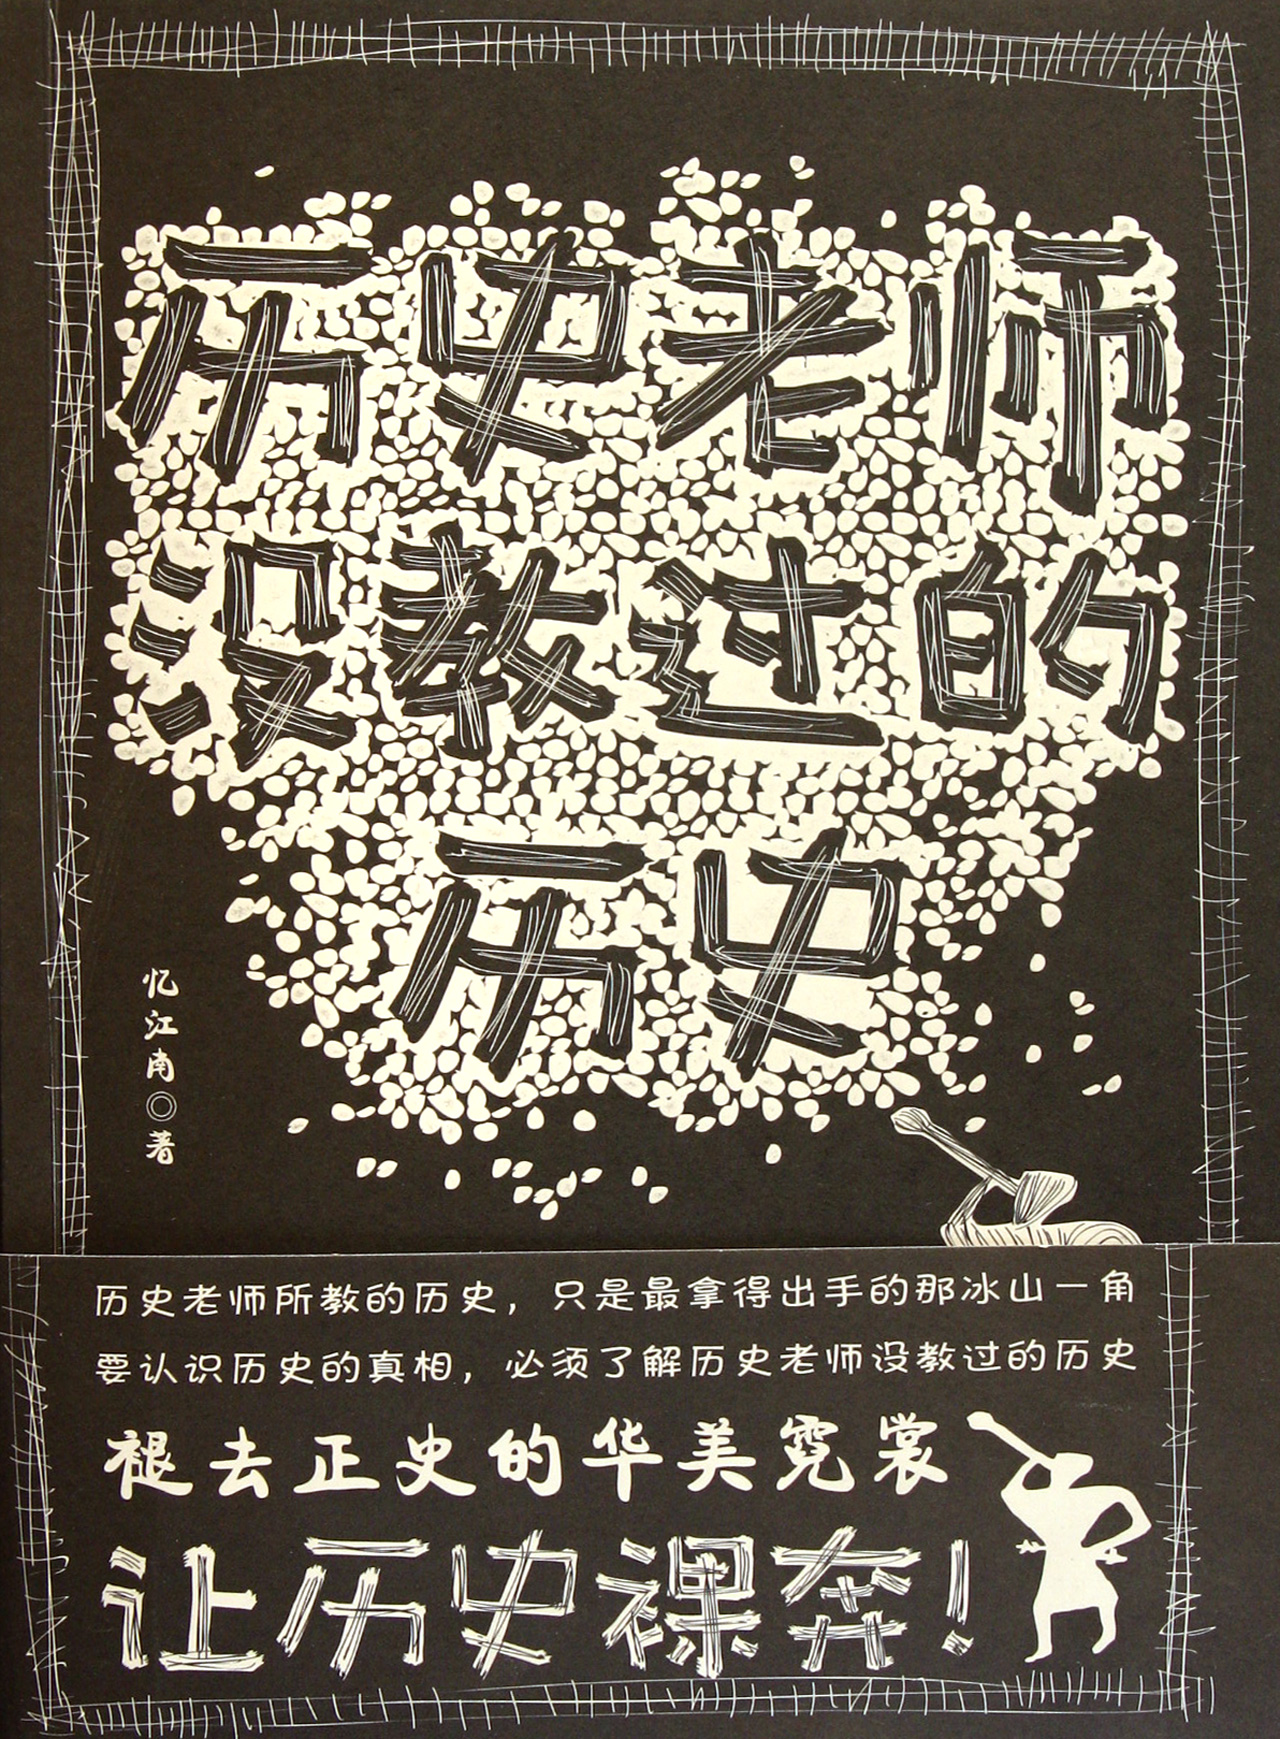 历史老师
没教过的
历史
忆江南◎著
历史老师所教的历史，只是最拿得出手的那冰山一角
要认识历史的真相，必须了解历史老师没教过的历史
褪去正史的华美霓裳
让历史裸奔！